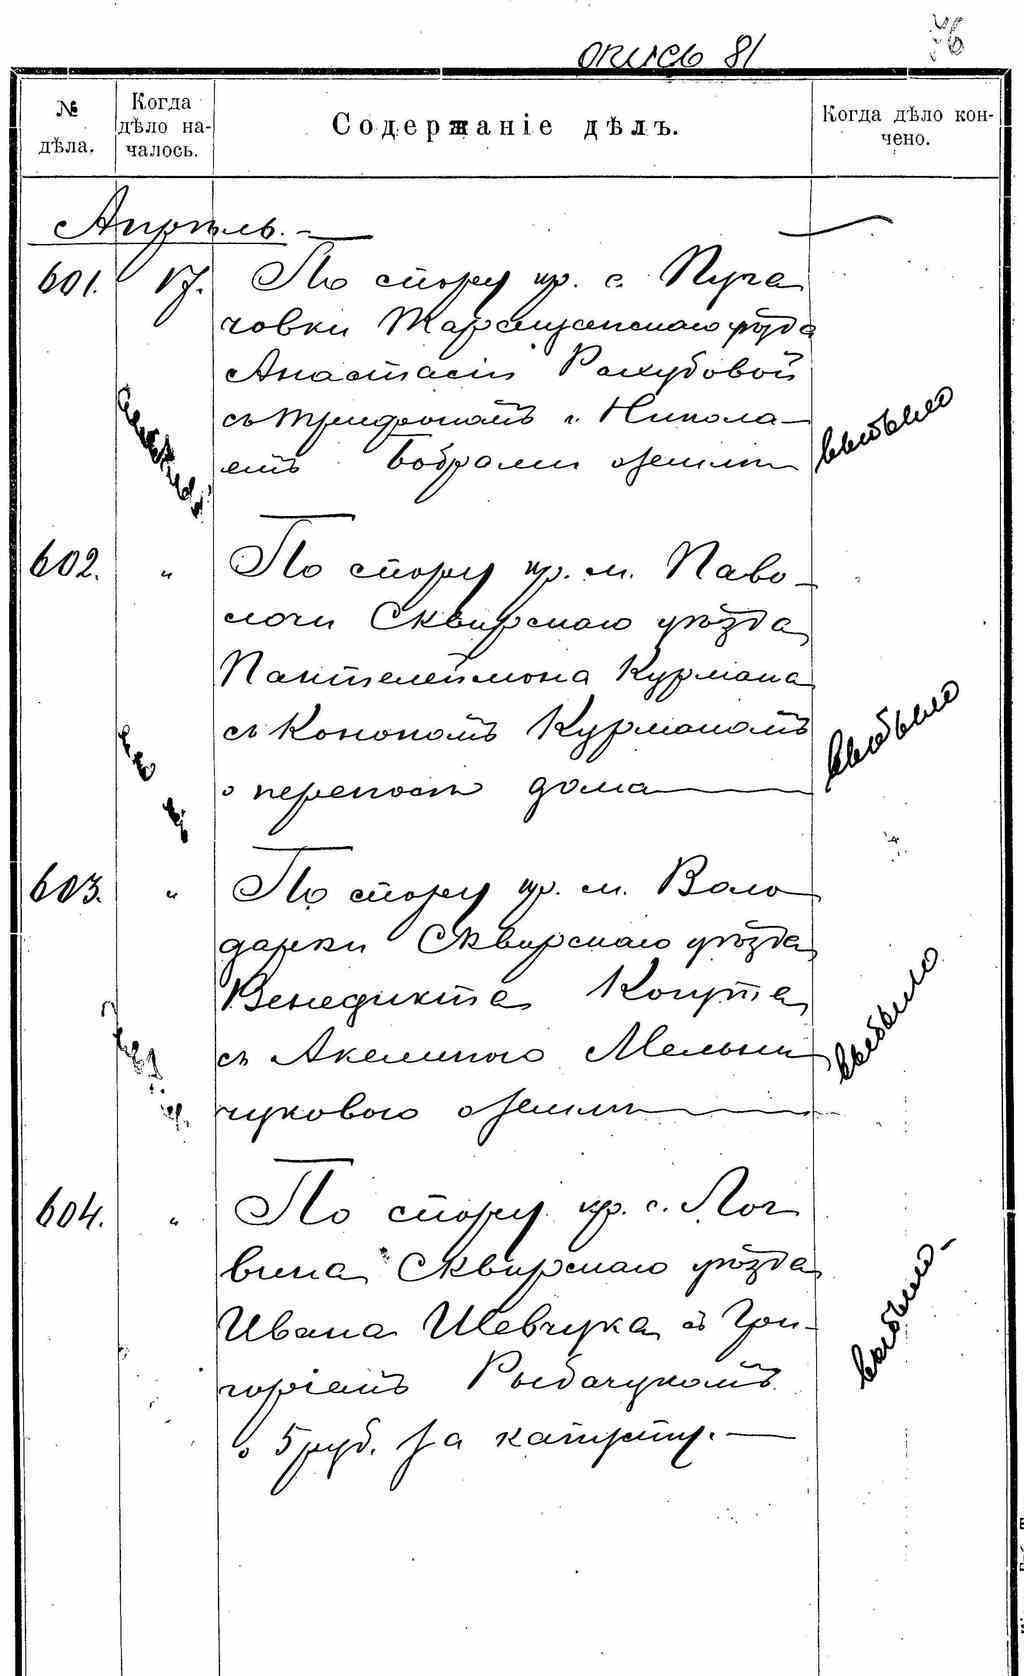 опись 81
№ дѣла.
Когда дѣло началось.
Содержаніе дѣлъ.
Когда дѣло кончено.
Апрѣль. —
601. 17. По спору кр. с. Пуга
човки Таращанскаго уѣзда
Анастасіи Рахубовой
съ Трифономъ и Никола-
емъ Бобрами о земли
выбыло
602. „ По спору кр. м. Паво-
лочи Сквирскаго уѣзда
Пантелеймона Курмана
съ Конономъ Курманомъ
о переносѣ дома
выбыло
603. „ По спору кр. м. Воло
дарки Сквирскаго уѣзда
Венедикта Когута
съ Акелиною Мельни
чуковою о земли
выбыло
604. „ По спору кр. с. Лог
вина Сквирскаго уѣзда
Ивана Шевчука съ Гри-
горіемъ Рыбачукомъ
о 5 руб. за квартиру. —
выбыло